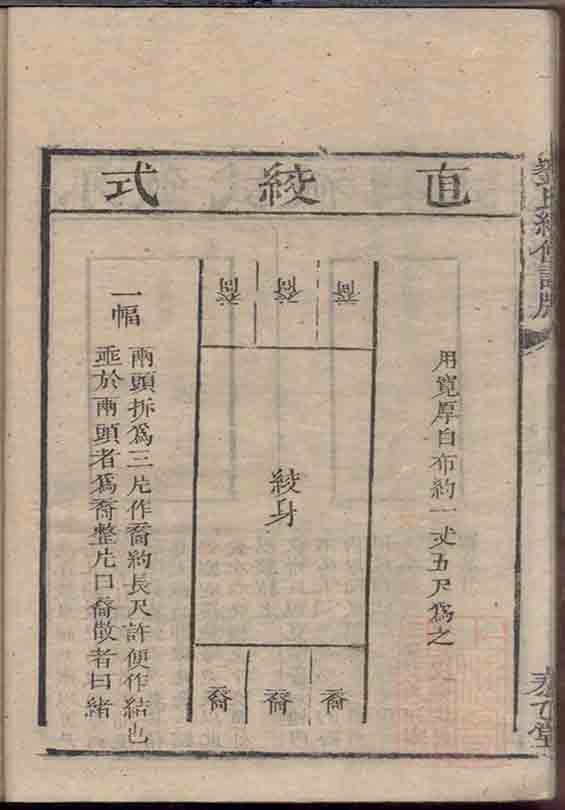 直絞式
用寬厚白布約一丈五尺爲之
裔 裔 裔
絞身
裔 裔 裔
一幅
兩頭拆爲三片作裔約長尺許便作結也
垂於兩頭者爲裔整片曰裔散者曰緒